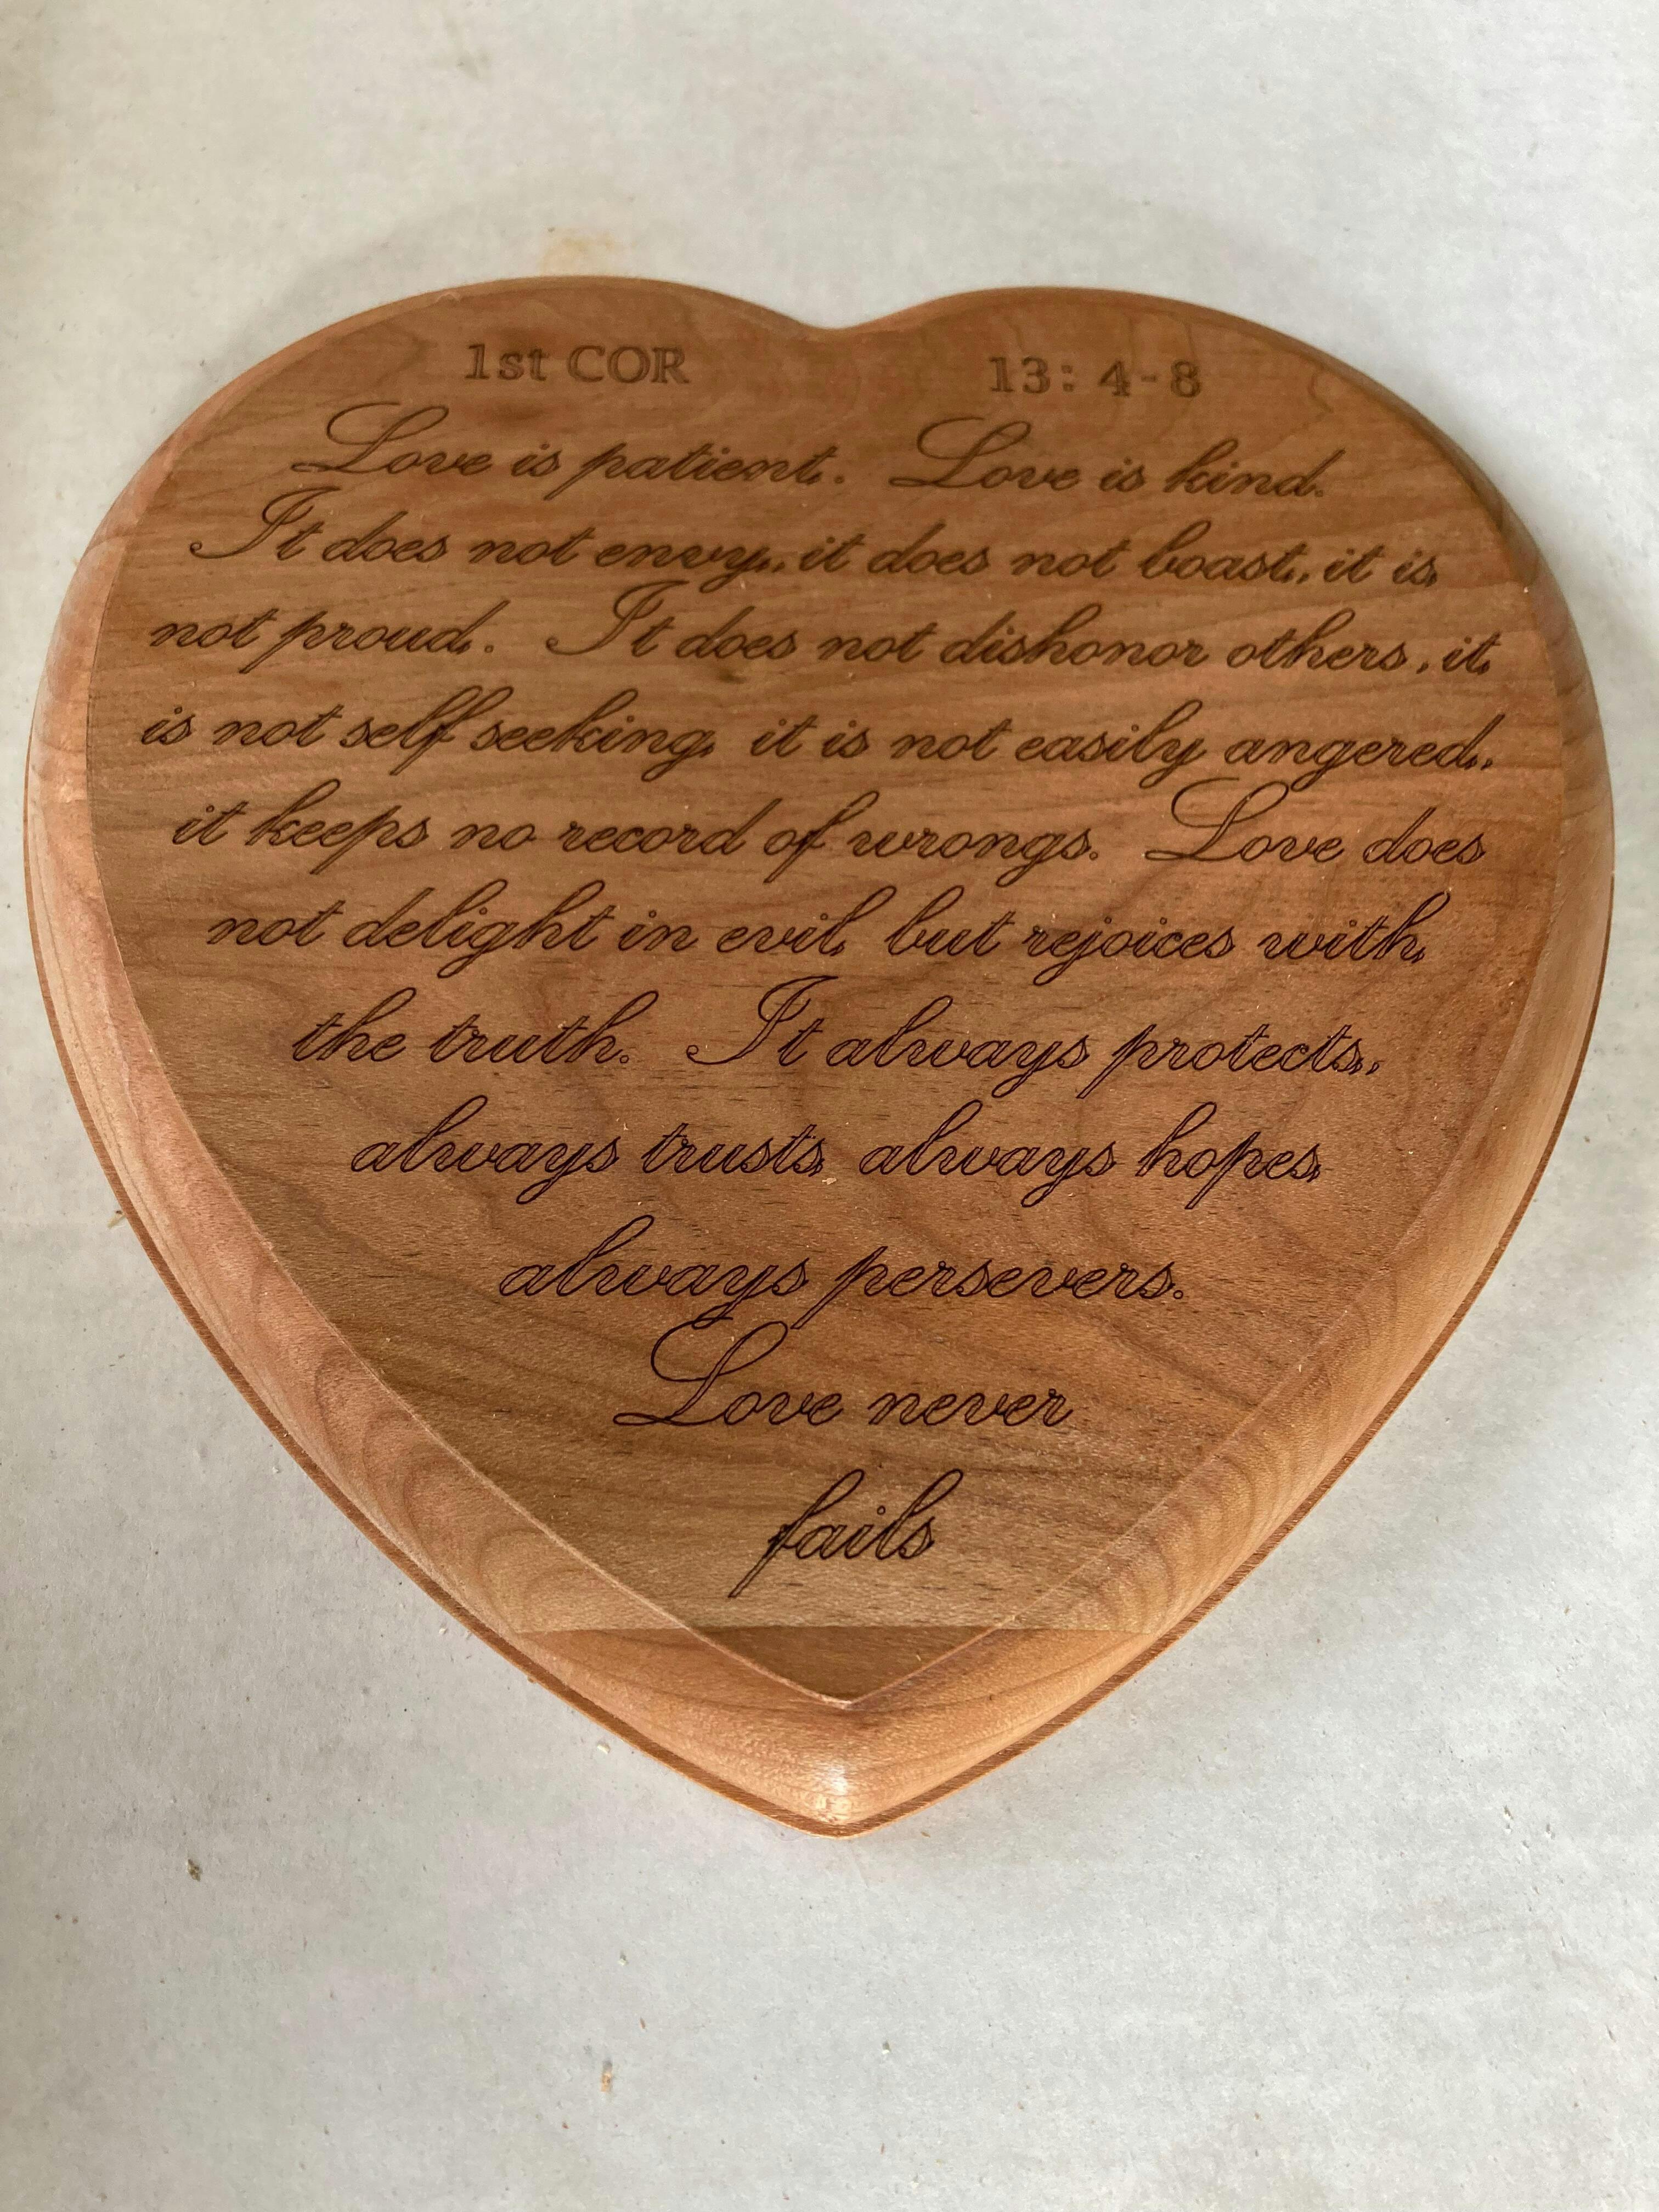 1st COR 13: 4-8
Love is patient. Love is kind.
It does not envy, it does not boast, it is
not proud. It does not dishonor others, it
is not self seeking, it is not easily angered,
it keeps no record of wrongs. Love does
not delight in evil, but rejoices with
the truth. It always protects,
always trusts, always hopes,
always persevers.
Love never
fails